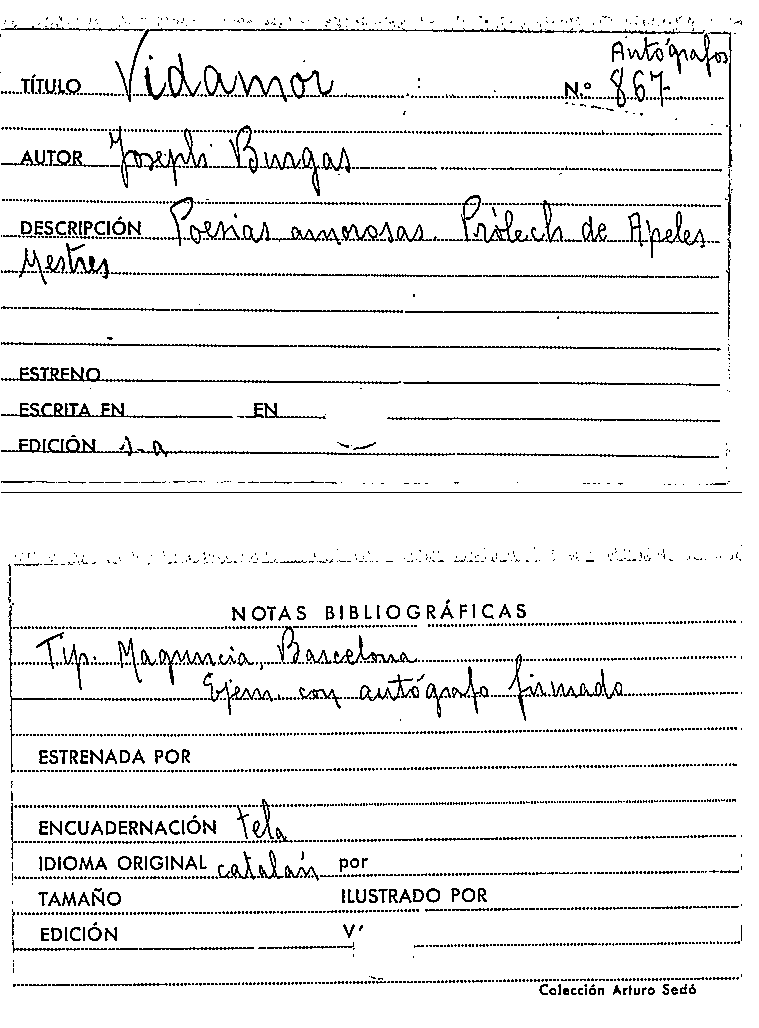 Autógrafos
TÍTULO Vidamor N.o 867
AUTOR Joseph Burgas
DESCRIPCIÓN Poesias amorosas. Pròlech de Apeles
Mestres
ESTRENO
ESCRITA EN EN
EDICIÓN s-a
NOTAS BIBLIOGRÁFICAS
Tip. Maguncia, Barcelona
Ejem. con autógrafo firmado
ESTRENADA POR
ENCUADERNACIÓN tela
IDIOMA ORIGINAL catalán por
TAMAÑO ILUSTRADO POR
EDICIÓN
Colección Arturo Sedó